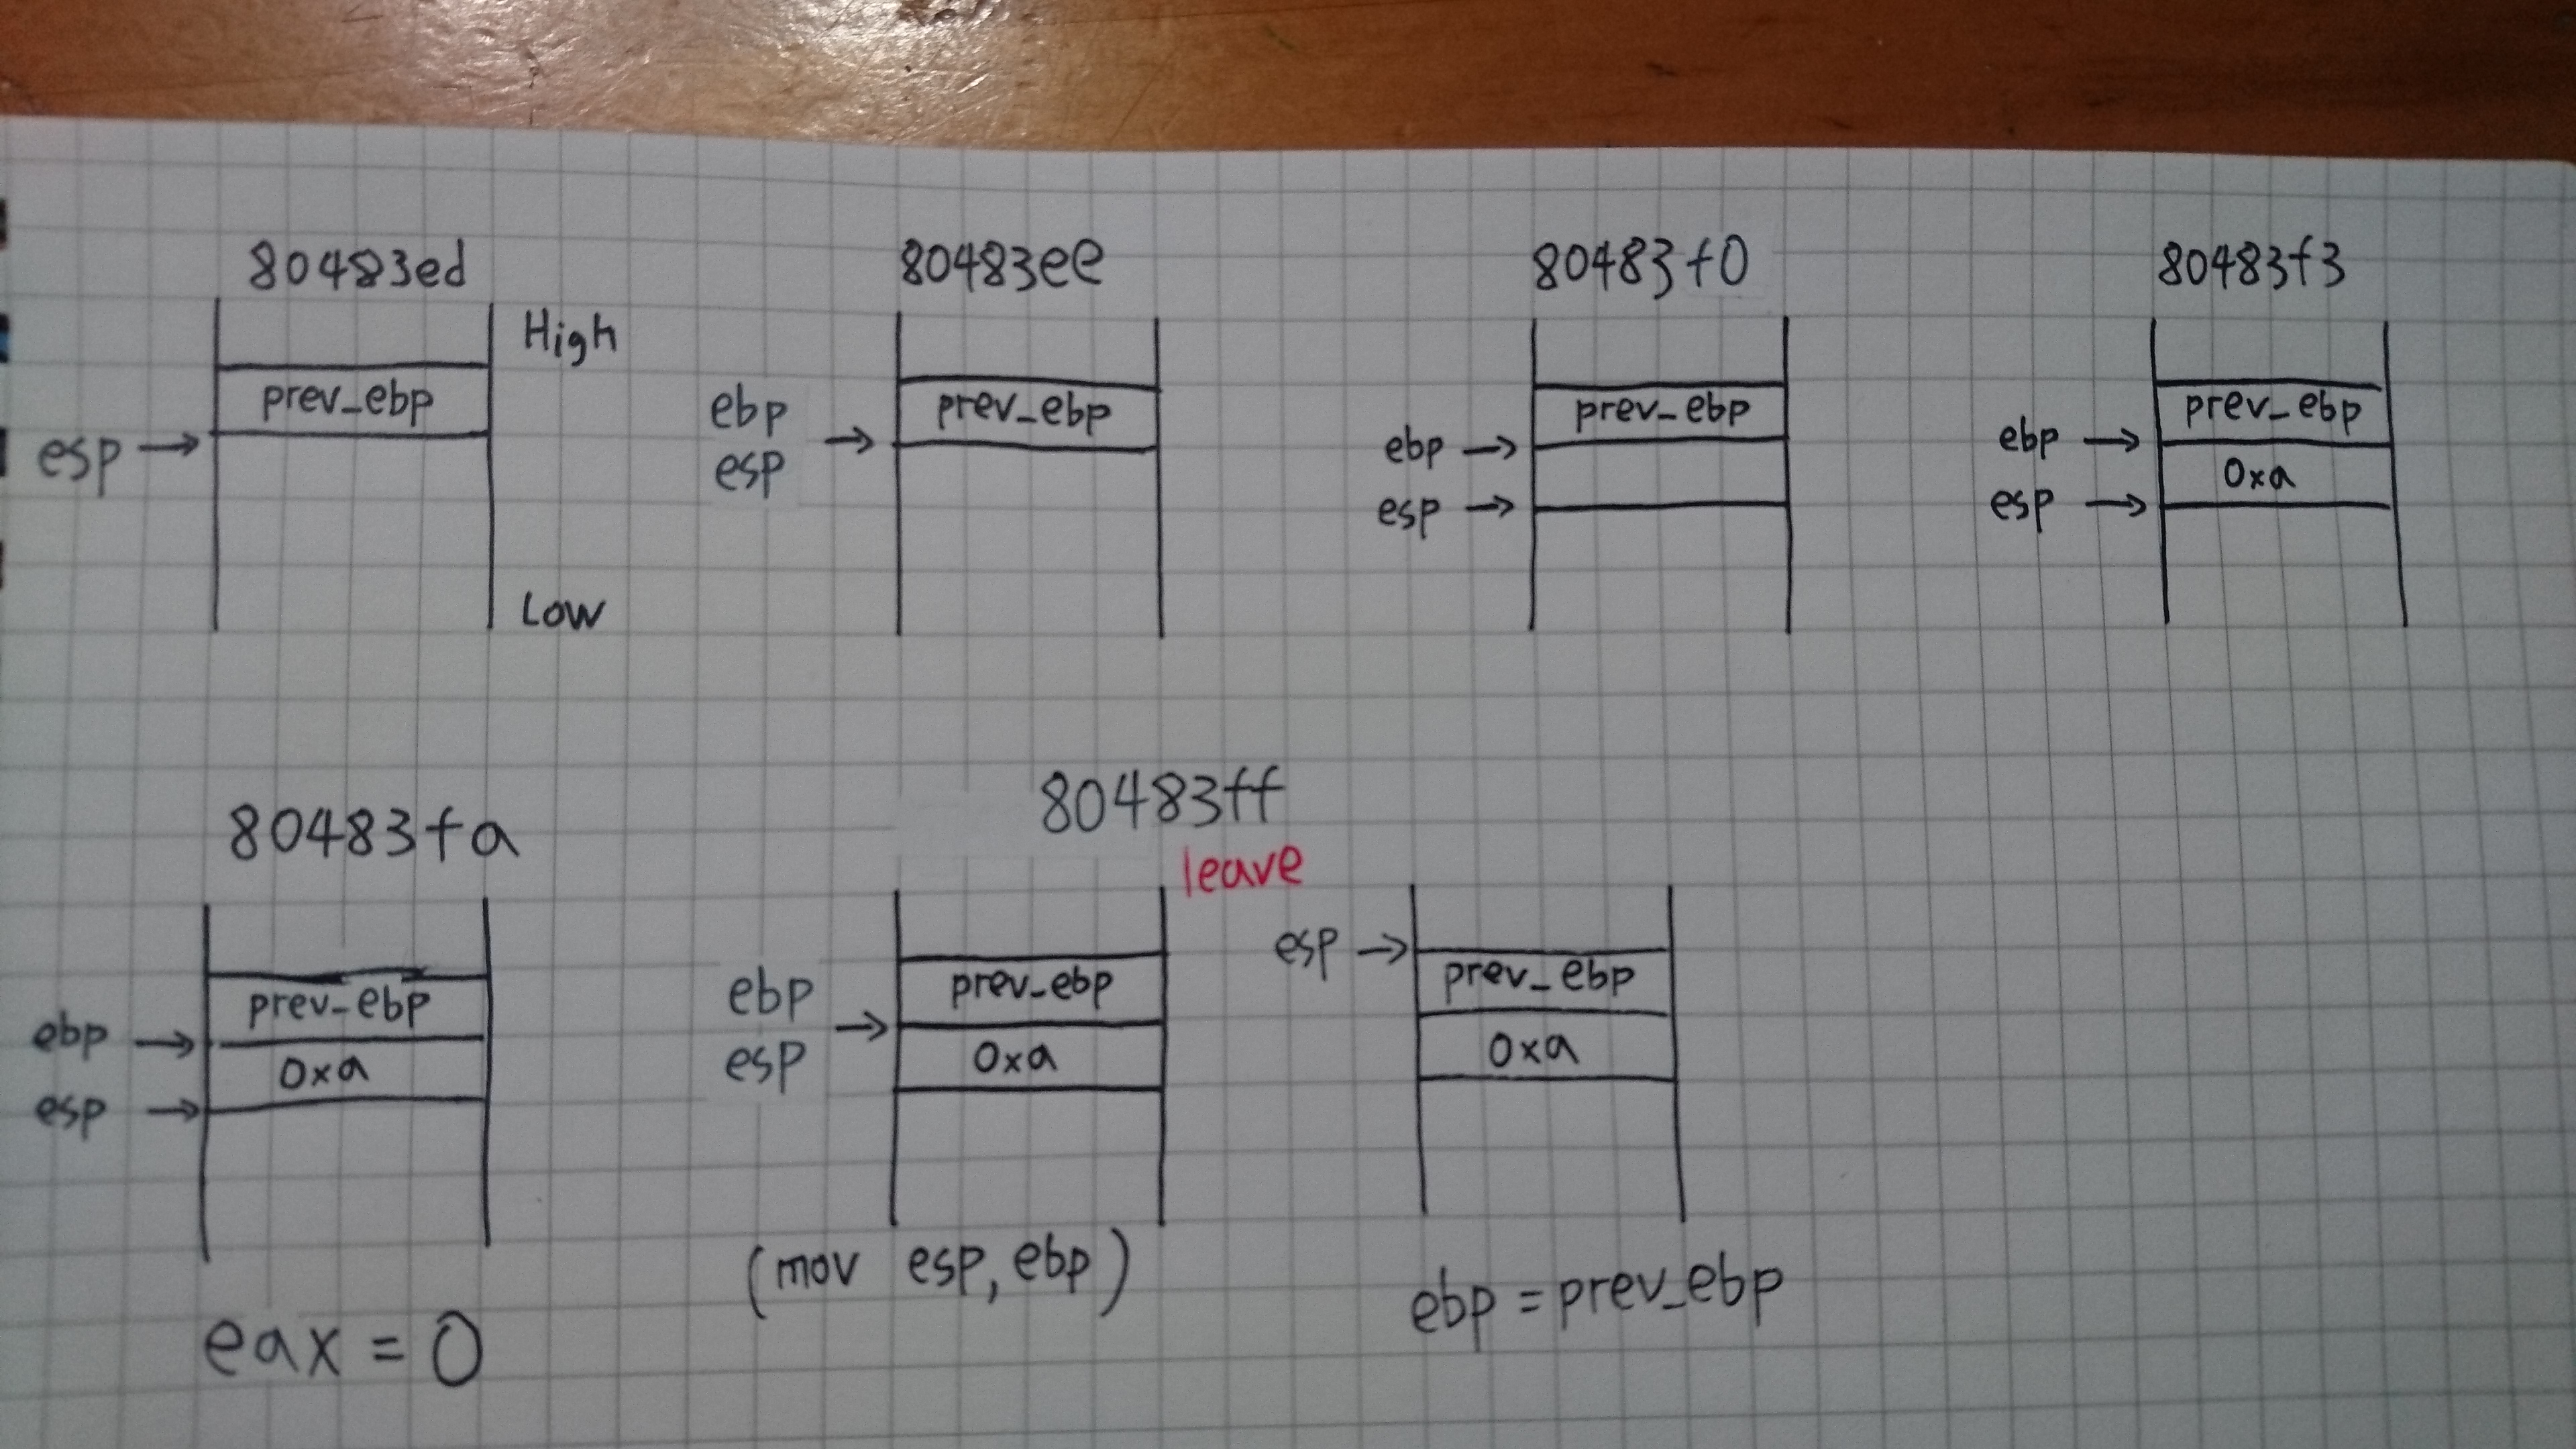 80483ed
High
prev_ebp
esp →
Low
80483ee
prev_ebp
ebp
esp →
80483f0
prev_ebp
ebp →
esp →
80483f3
prev_ebp
ebp →
0xa
esp →
80483fa
prev_ebp
ebp →
0xa
esp →
eax = 0
80483ff
leave
prev_ebp
ebp
esp →
0xa
(mov esp, ebp)
esp →
prev_ebp
0xa
ebp = prev_ebp